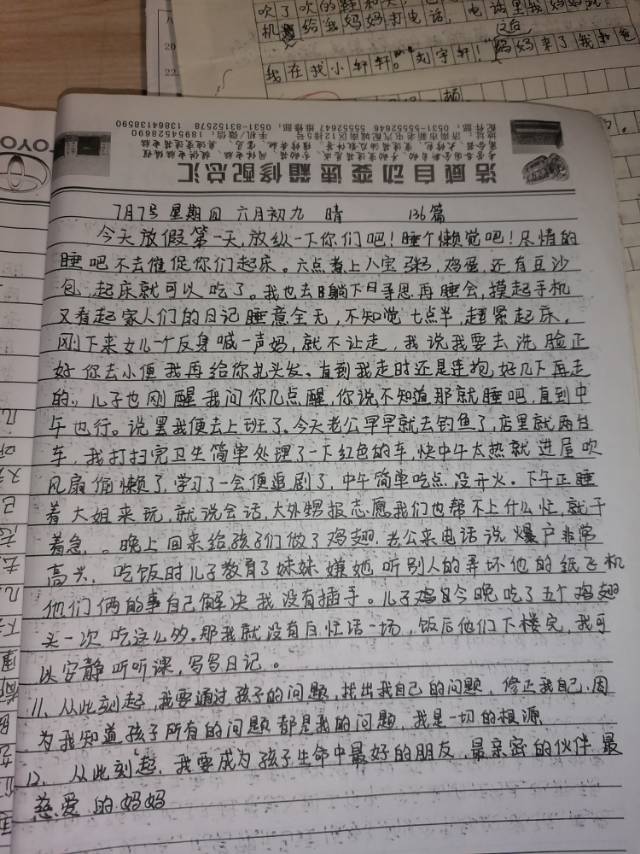 机 给我妈妈打电话，电话里我妈妈说
之后
我在找小轩轩。刘宇轩！妈妈来了我和爸
浩威自动变速箱修配总汇
地址：济南市新老屯汽配城南区12排5号
配件部：0531-55552646 55552647 维修部：0531-83152578
手机/微信：18954528690 13864138590
7月7号 星期四 六月初九 晴 136篇
今天放假第一天，放纵一下你们吧！睡个懒觉吧！尽情的
睡吧不去催促你们起床。六点煮上八宝粥，鸡蛋，还有豆沙
包，起床就可以吃了。我也去躺下寻思再睡会，摸起手机
又看起家人们的日记睡意全无，不知觉七点半，赶紧起床，
刚下来女儿一个反身喊一声妈，就不让走，我说我要去洗脸正
好你去小便我再给你扎头发。直到我走时还是连抱好几下再走
的。儿子也刚醒我问你几点醒，你说不知道那就睡吧，直到中
午也行。说罢我便去上班了。今天老公早早就去钓鱼了，店里就两台
车，我打扫完卫生简单处理了一下红色的车，快中午太热就进屋吹
风扇偷懒了，学习了一会便追剧了，中午简单吃点没开火。下午正睡
着大姐来玩，就说会话，大外甥报志愿我们也帮不上什么忙，就干
着急，。晚上回来给孩子们做了鸡翅，老公来电话说爆户非常
高兴，吃饭时儿子教育了妹妹嫌她听别人的弄坏他的纸飞机
他们俩的事自己解决我没有插手。儿子今晚吃了五个鸡翅
头一次吃这么多。那我就没有白忙活一场，饭后他们下楼完，我可
以安静听听课，写写日记。
11、从此刻起，我要通过孩子的问题，找出我自己的问题，修正我自己，因
为我知道孩子所有的问题都是我的问题，我是一切的根源
12、从此刻起，我要成为孩子生命中最好的朋友，最亲密的伙伴，最
慈爱的妈妈